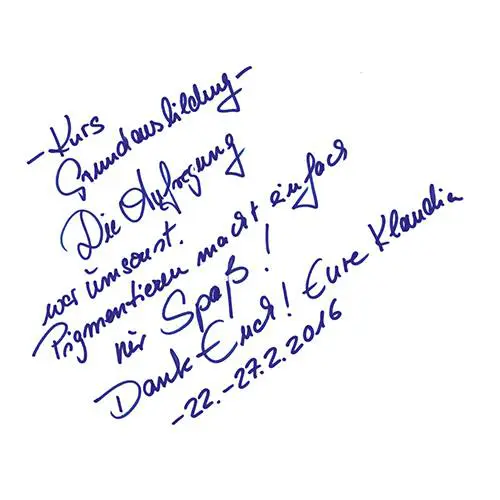 - Kurs
Grundausbildung -
Die Aufregung
war ümsonst.
Pigmentieren macht einfach
nür Spaß!
Dank Euch! Eure Klaudia
-22.-27.2.2016